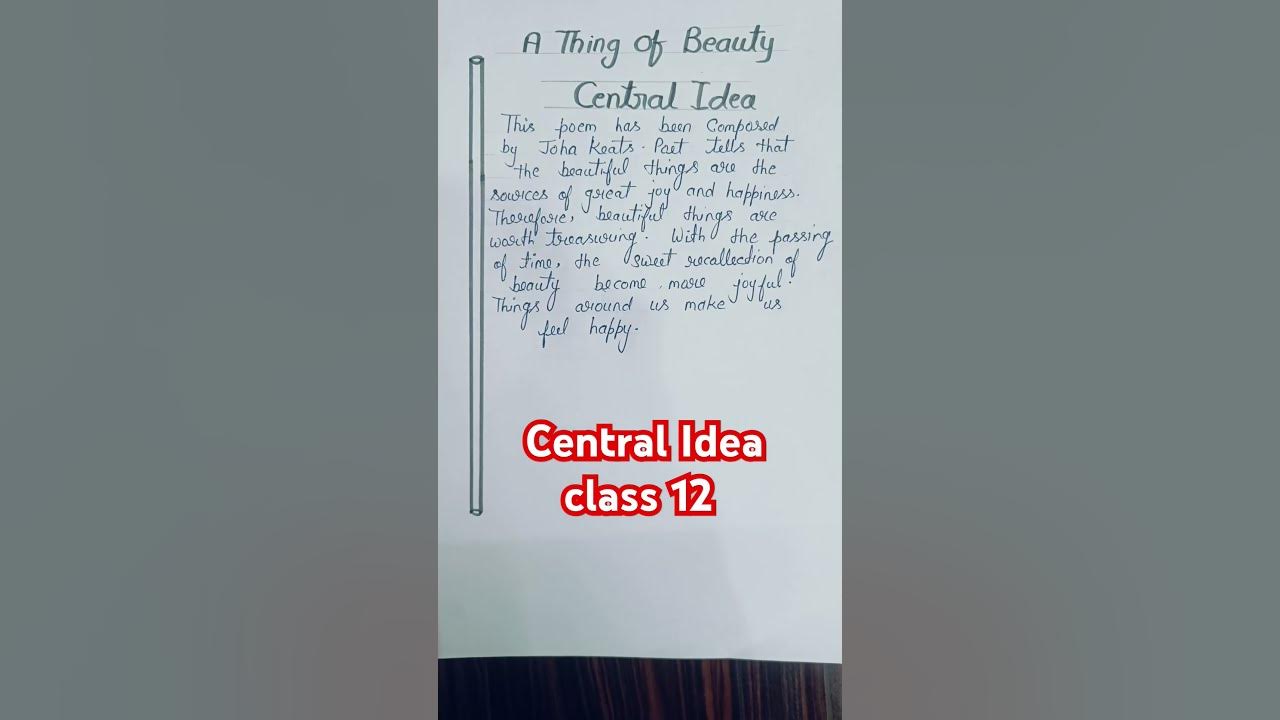 A Thing Of Beauty
Central Idea
This poem has been Composed
by John Keats. Poet tells that
the beautiful things are the
sources of great joy and happiness.
Therefore, beautiful things are
worth treasuring. With the passing
of time, the sweet recollection of
beauty become more joyful.
Things around us make us
feel happy.
Central Idea
class 12